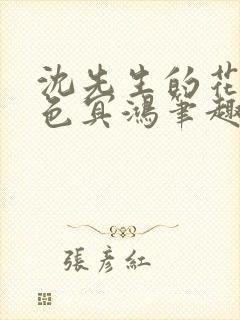 沈先生的花
色冥鴻筆趣
張彥紅